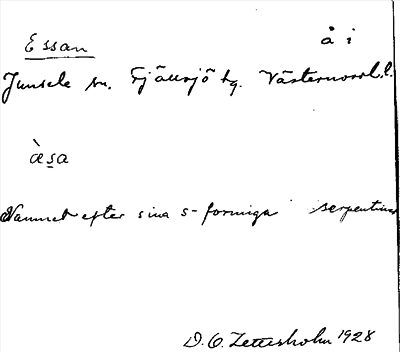 Essan å i
Junsele sn. Fjällsjö tg. Västernorrl. l.
àsa
Namnet efter sina s-formiga serpentiner
D. O. Zetterholm 1928